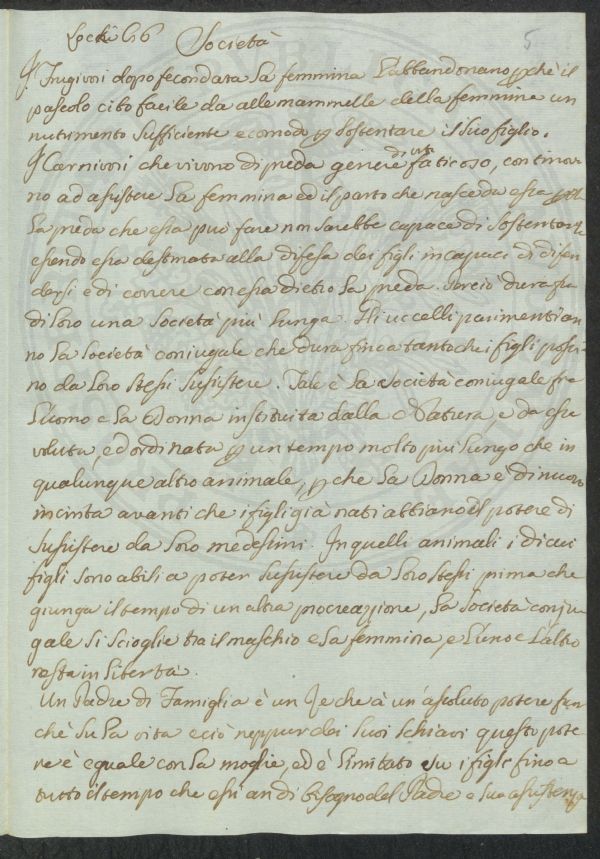 Locki lib 6 Società 5
I Frugivori dopo fecondata la femmina l'abbandonano pchè il
pascolo cibo facile da alle mammelle della femmina un
nutrimento sufficiente e comodo p sostentare il suo figlio.
I Carnivori che vivono di preda genere di vita faticoso, continova-
no ad assistere la femmina ed il parto che nasce da essa
la preda che essa può fare non sarebbe capace di sostentarli
essendo essa destinata alla difesa dei figli incapaci di difen
dersi e di correre con essa dietro la preda. Perciò dura fra
di loro una società più lunga. Gli uccelli parimenti an
no la società coniugale che dura fin a tanto che i figli possi-
no da loro stessi sussistere. Tale è la società coniugale fra
l'uomo e la Donna instituita dalla Natura, e da essa
voluta, ed ordinata p un tempo molto più lungo che in
qualunque altro animale, p che la Donna è di nuovo
incinta avanti che i figli già nati abbiano il potere di
sussistere da loro medesimi. In quelli animali i di cui
figli sono abili a poter sussistere da loro stessi prima che
giunga il tempo di un altra procreazione, la società conju
gale si scioglie tra il maschio e la femmina, e l'uno e l'altro
resta in libertà.
Un Padre di Famiglia è un Re che à un assoluto potere fuor
chè su la vita e ciò neppur dei suoi schiavi questo pote
re è eguale con la moglie, ed è limitato su i figli fino a
tutto il tempo che essi an di bisogno del Padre e sua assistenza